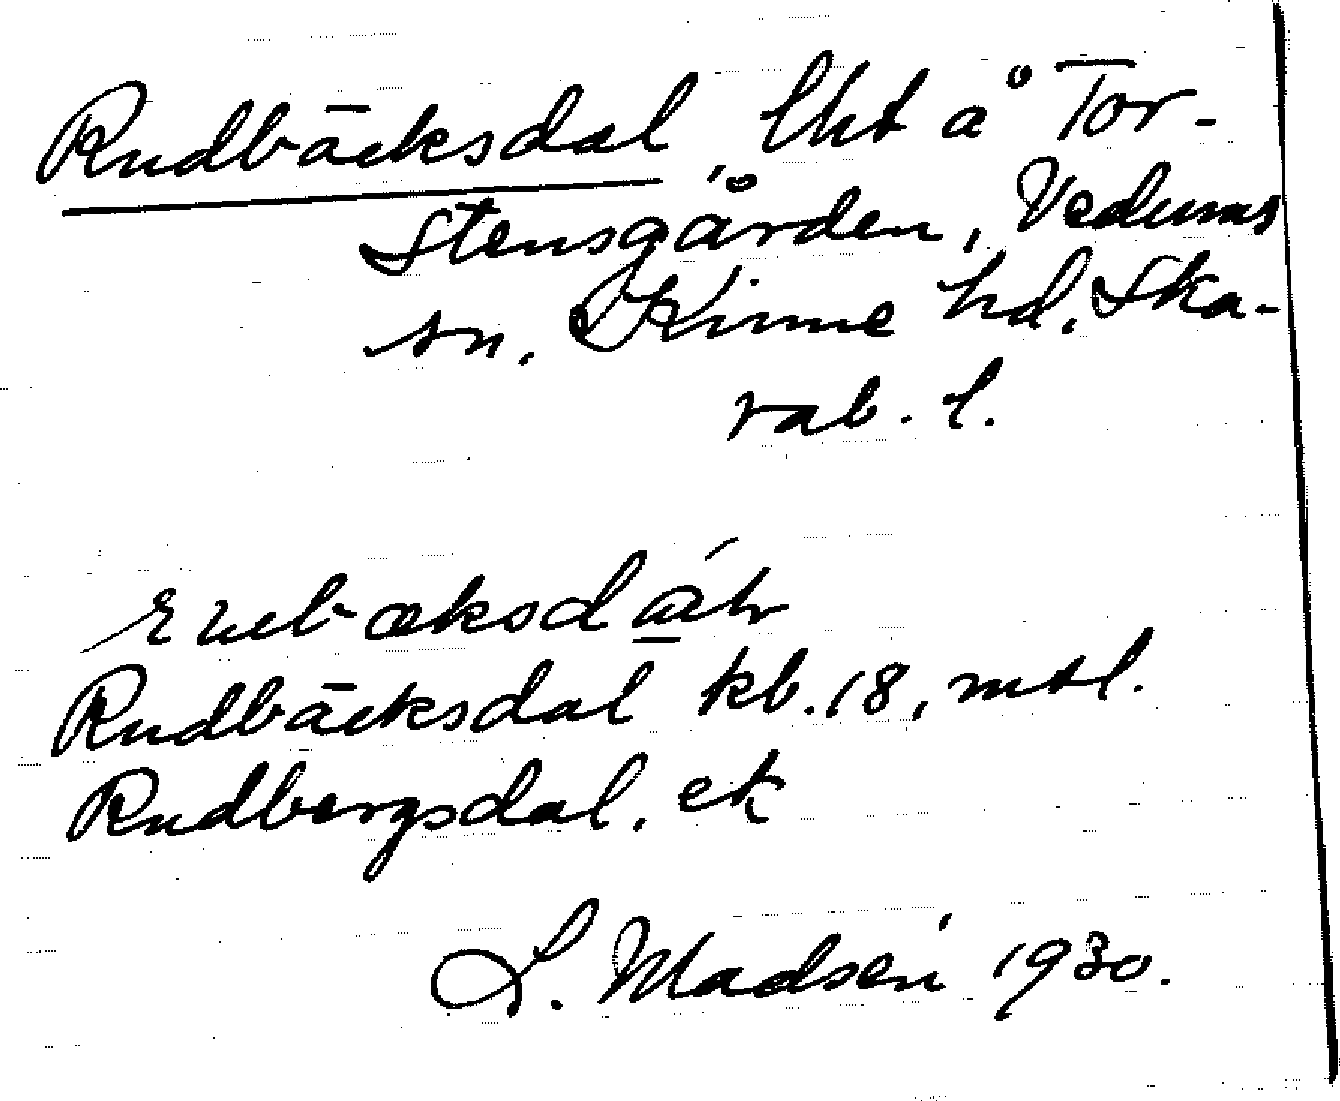 Rudbäcksdal, lht å Tor-
stensgården, Vedums
sn. Kinne hd. Ska-
rab. l.
Rudbäcksdal kb. 18, mtl.
Rudbergsdal, ek
L. Madsén 1930.